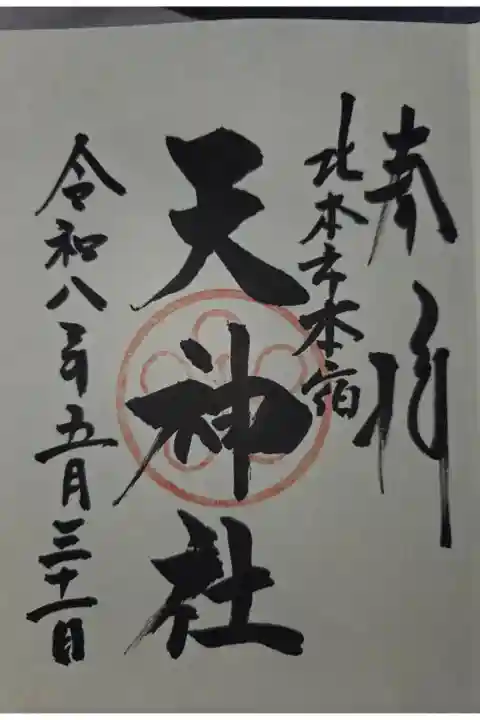 奉拝
北本市本宿
天神社
令和八年五月三十一日